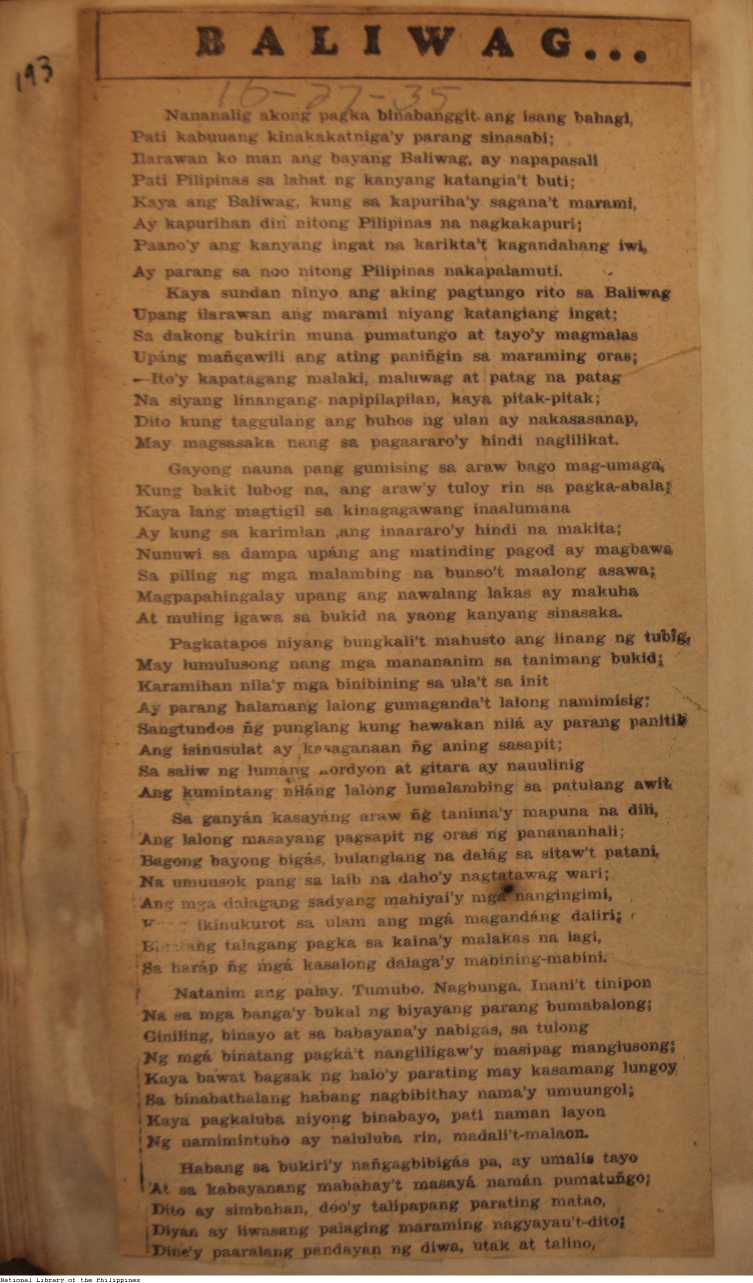 BALIWAG...
193
16-27-35
Nananalig akong pagka binabanggit ang isang bahagi,
Pati kabuuang kinakakatniga'y parang sinasabi;
Ilarawan ko man ang bayang Baliwag, ay napapasali
Pati Pilipinas sa lahat ng kanyang katangia't buti;
Kaya ang Baliwag, kung sa kapuriha'y sagana't marami,
Ay kapurihan din nitong Pilipinas na nagkakapuri;
Paano'y ang kanyang ingat na karikta't kagandahang iwi,
Ay parang sa noo nitong Pilipinas nakapalamuti.
Kaya sundan ninyo ang aking pagtungo rito sa Baliwag
Upang ilarawan ang marami niyang katangiang ingat;
Sa dakong bukirin muna pumatungo at tayo'y magmalas
Upáng mañgawili ang ating paniñgin sa maraming oras;
—Ito'y kapatagang malaki, maluwag at patag na patag
Na siyang linangang napipilapilan, kaya pitak-pitak;
Dito kung taggulang ang buhos ng ulan ay nakasasanap,
May magsasaka nang sa pagaararo'y hindi naglilikat.
Gayong nauna pang gumising sa araw bago mag-umaga,
Kung bakit lubog na, ang araw'y tuloy rin sa pagka-abala;
Kaya lang magtigil sa kinagagawang inaalumana
Ay kung sa karimlan ,ang inaararo'y hindi na makita;
Nunuwi sa dampa upáng ang matinding pagod ay magbawa
Sa piling ng mga malambing na bunso't maalong asawa;
Magpapahingalay upang ang nawalang lakas ay makuha
At muling igawa sa bukid na yaong kanyang sinasaka.
Pagkatapos niyang bungkali't mahusto ang linang ng tubig,
May lumulusong nang mga manananim sa tanimang bukid;
Karamihan nila'y mga binibining sa ula't sa init
Ay parang halamang lalong gumaganda't lalong namimisig;
Sangtundos ñg punglang kung hawakan nilá ay parang panitik
Ang isinusulat ay kasaganaan ñg aning sasapit;
Sa saliw ng lumang at gitara ay nauulinig
Ang kumintang niláng lalong lumalambing sa patulang awit.
Sa ganyán kasayáng araw ñg tanima'y mapuna na dili,
Ang lalong masayang pagsapit ng oras ng panananhali;
Bagong bayong bigás, bulanglang na dalág sa sitaw't patani,
Na umuusok pang sa laib na daho'y nagtatawag wari;
Ang mga dalagang sadyang mahiyai'y mga nangingimi,
ikinukurot sa ulam ang mgá magandáng daliri;
talagang pagka sa kaina'y malakas na lagi,
Sa haráp ñg mgá kasalong dalaga'y mabining-mabini.
Natanim ang palay. Tumubo. Nagbunga. Inani't tinipon
Na sa mga banga'y bukal ng biyayang parang bumabalong;
Giniling, binayo at sa babayana'y nabigas, sa tulong
Ng mgá binatang pagká't nangliligaw'y masipag manglusong;
Kaya bawat bagsak ng halo'y parating may kasamang lungoy
Sa binabathalang habang nagbibithay nama'y umuungol;
Kaya pagkaluba niyong binabayo, pati naman layon
Ng namimintuho ay naluluba rin, madali't-malaon.
Habang sa bukiri'y nañgagbibigás pa, ay umalis tayo
At sa kabayanang mabahay't masayá namán pumatuñgo;
Dito ay simbahan, doo'y talipapang parating matao,
Diyan ay liwasang palaging maraming nagyayau't-dito;
Dine'y paaralang pandayan ng diwa, utak at talino,
National Library of the Philippines